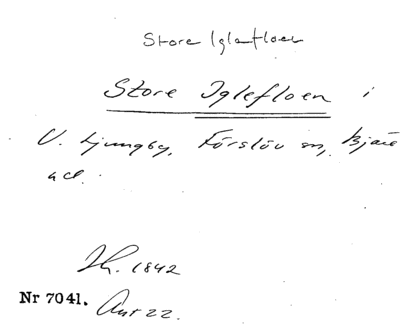 Store Iglafloen
Store Iglefloen i
V. Ljungby, Förslöv sn, Bjäre
hd.
Lh. 1842
Nr 7041. Avr 22.